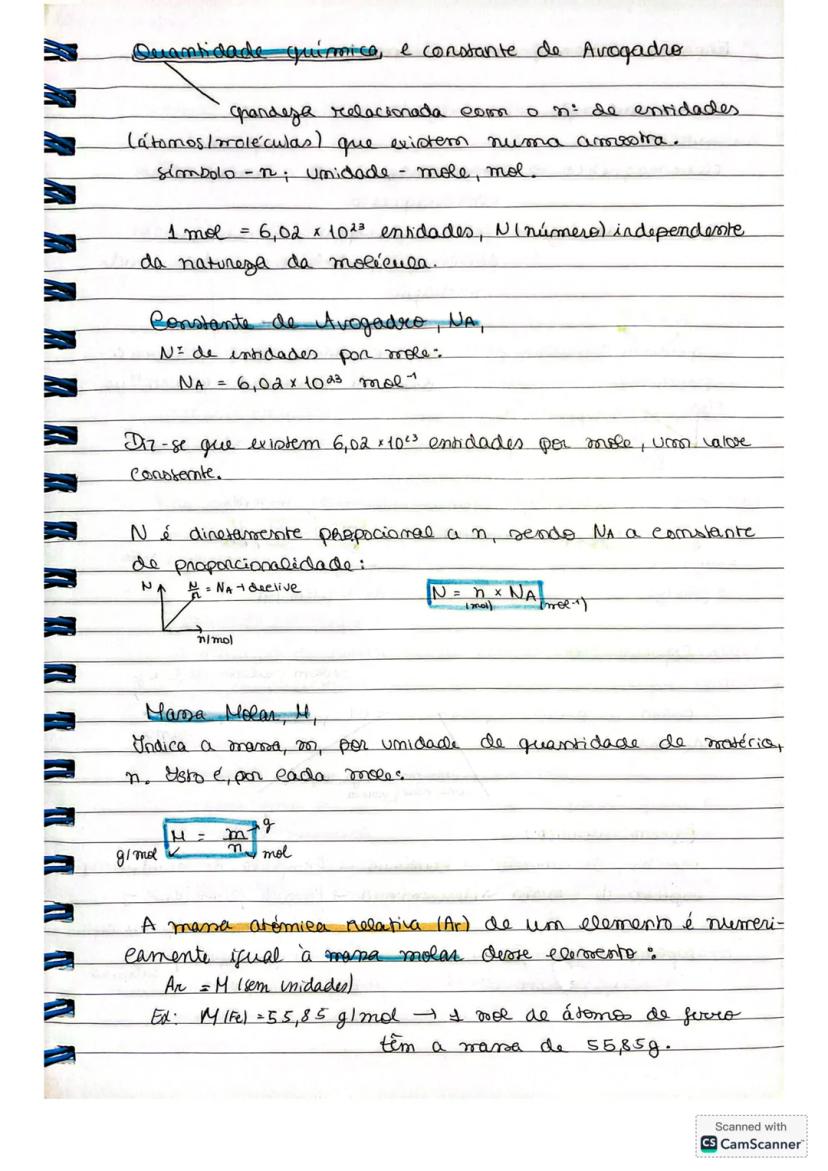 Quantidade química, e constante de Avogadro
grandeza relacionada com o nº de entidades
(átomos/moléculas) que existem numa amostra.
símbolo - n; unidade - mole, mol.
1 mol = 6,02 × 10²³ entidades, N (número) independente
da natureza da molécula.
Constante de Avogadro, NA,
Nº de entidades por mole:
NA = 6,02 × 10²³ mol⁻¹
Diz-se que existem 6,02 × 10²³ entidades por mole, um valor
constante.
N é diretamente propocional a n, sendo NA a constante
de proporcionalidade:
N N/n = NA → declive
n/mol
N = n × NA
(mol) (mol⁻¹)
Massa Molar, M,
Indica a massa, m, por unidade de quantidade de matéria,
n. Isto é, por cada mole:
M = m/n
g
g/mol mol
A massa atómica relativa (Ar) de um elemento é numeri-
camente igual à massa molar desse elemento:
Ar = M (sem unidades)
Ex: M(Fe) = 55,85 g/mol → 1 mol de átomos de ferro
têm a massa de 55,85g.
Scanned with
CS CamScanner